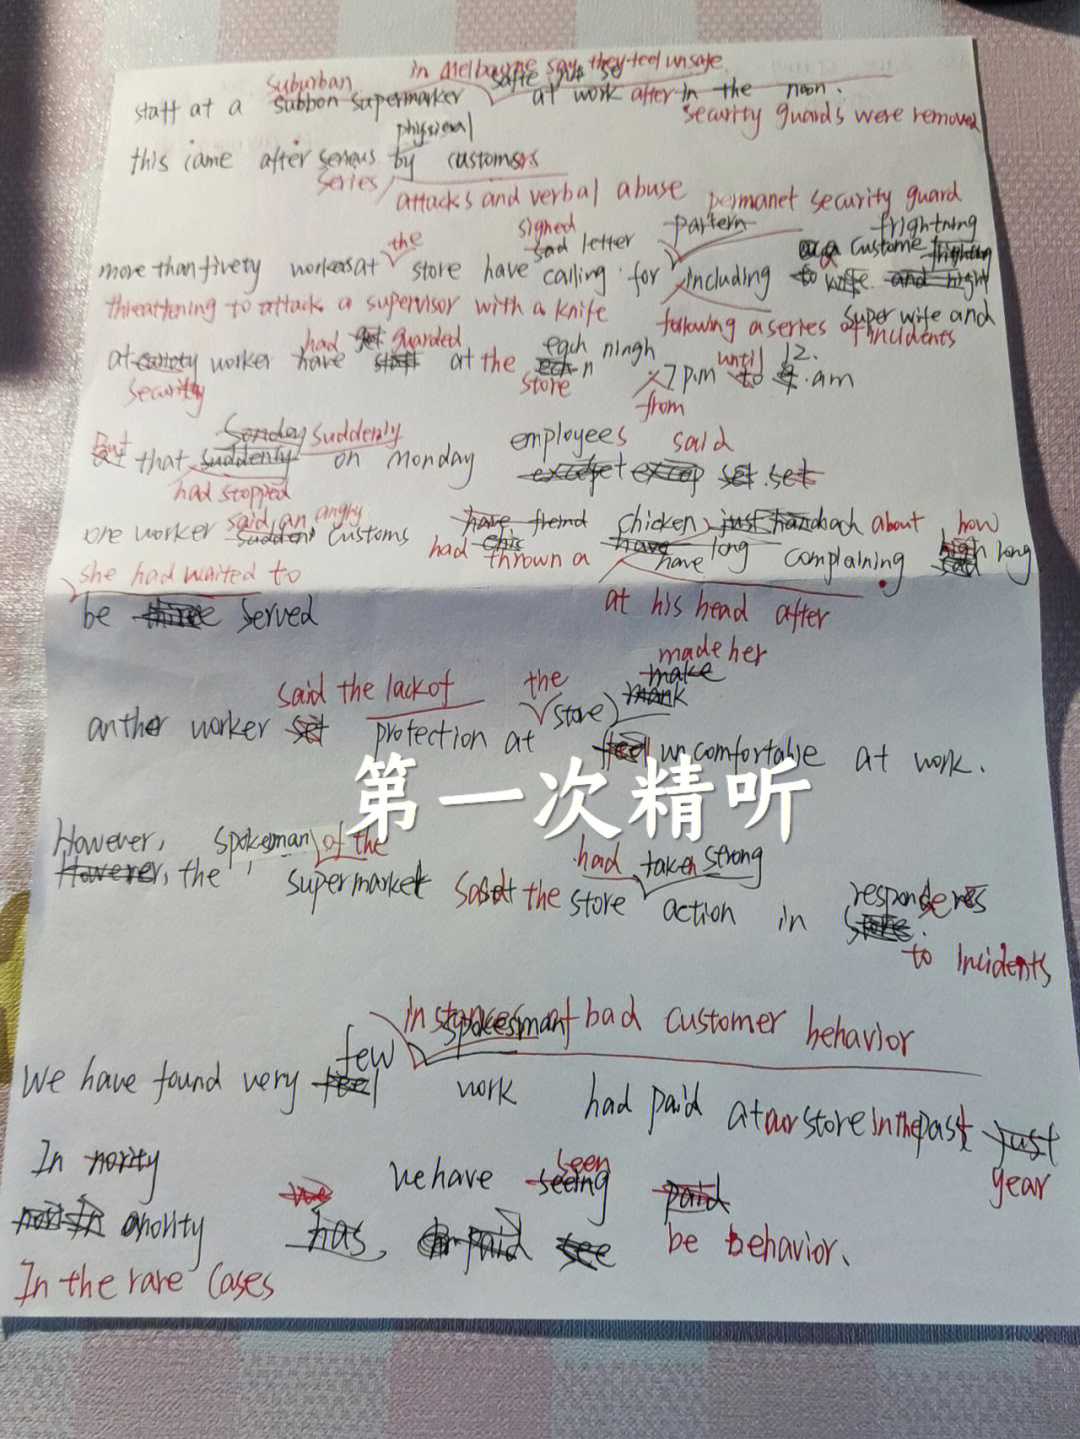 suburban in Melbourne say they feel unsafe
staff at a subbon supermarker at work after in the noon.
physical security guards were removed
this came after serious by customers
series attacks and verbal abuse permanet security guard
the signed partern frightning
more than fivety workers at store have sad letter calling for including a custome
threathening to attack a supervisor with a knife following a series of incidents super wife and
had get guarded each ningh until 12.
at worker have staff at the store 7 p.m to am
security from
But Sonday suddenly employees said
that suddenly on monday set.set
had stopped
said an angry have chicken just about how
one worker sudden customs had thrown a have long complaining long
she had waited to at his head after
be three served
made her
said the lack of the make
anther worker set protection at store mank
feel uncomfortable at work.
第一次精听
However, spokesman of the had taken strong
However, the supermarket the store action in responderes
to incidents
instances of bad customer behavior
few spokesman
We have found very feel work had paid at our store in the past just
year
In nority we have seen seeing paid
anority has, paid see be behavior.
In the rare cases